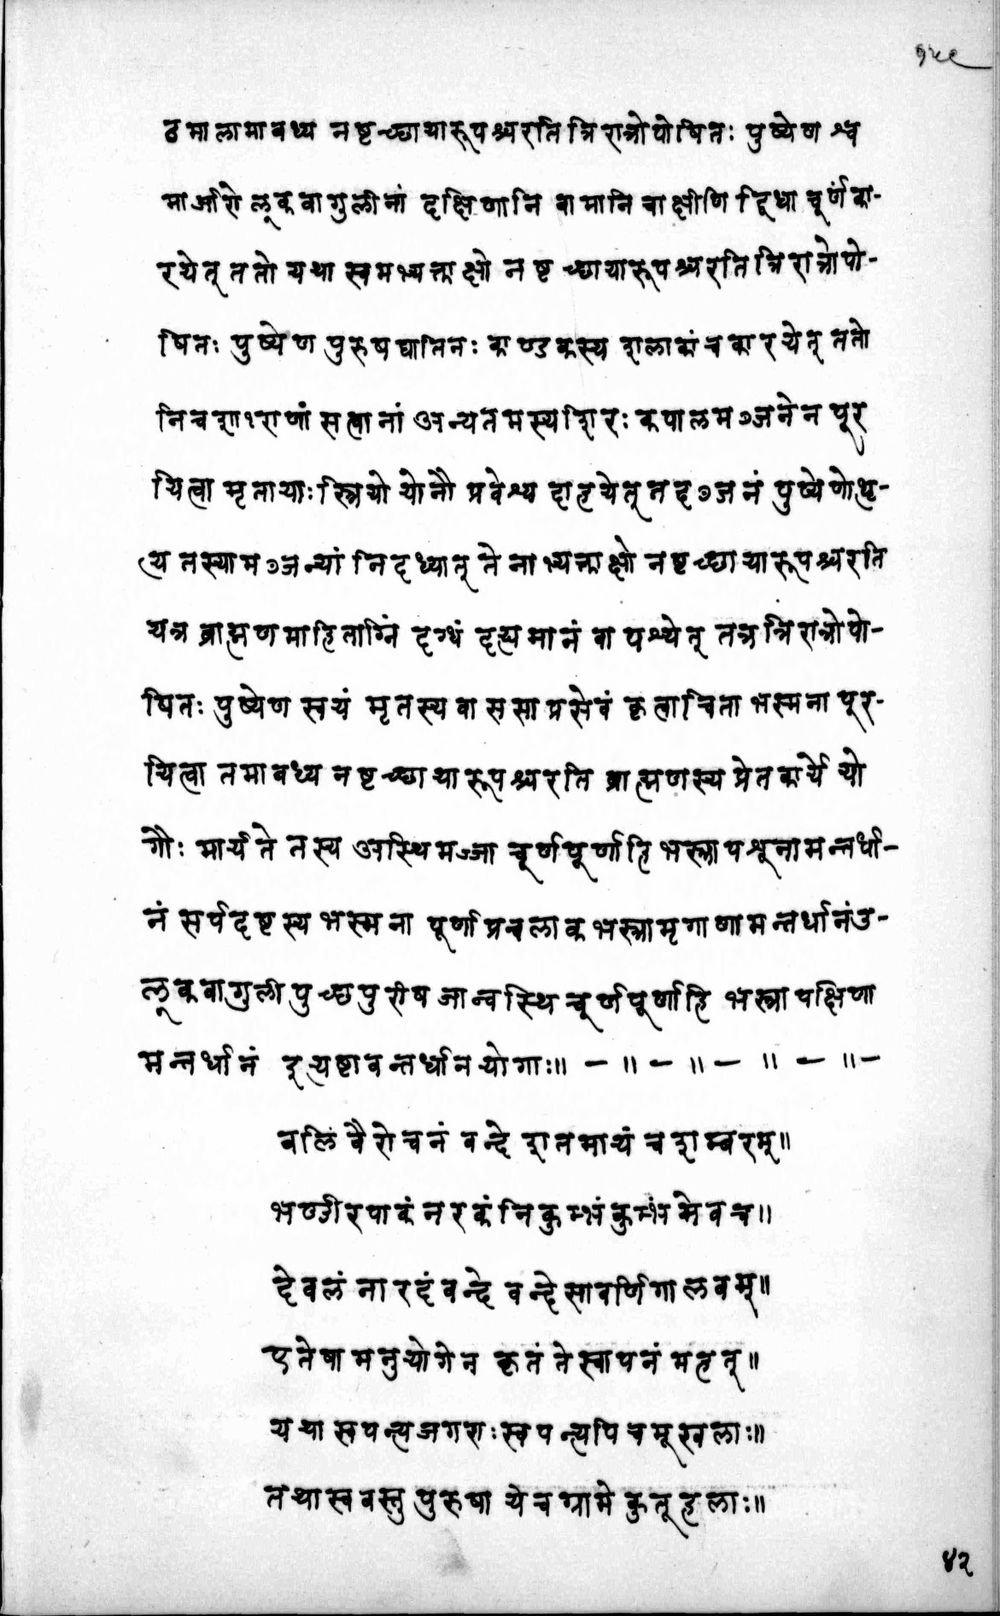 १५९
ठमालामाबध्य नष्टच्छायारूपश्चरति त्रिरात्रोपोषितः पुष्येण श्व
मार्जारोलूकवागुलीनां दक्षिणानि वामानि चाक्षीणि द्विधा चूर्णं का-
रयेत् ततो यथास्वमभ्यक्ताक्षो नष्टच्छायारूपश्चरति त्रिरात्रोपो-
षितः पुष्येण पुरुषघातिनः काण्डकस्य शलाकां च कारयेत् ततो
निचशा१राणां सत्वानां अन्यतमस्य शिरः कपालमञ्जनेन पूर
यित्वा मृतायाः स्त्रियो योनौ प्रवेश्य दाहयेत् तदञ्जनं पुष्येणोद्धृ-
त्य तस्यामञ्जन्यां निदध्यात् तेनाभ्यक्ताक्षो नष्टच्छायारूपश्चरति
यत्र ब्राह्मणमाहिताग्निं दग्धं दह्यमानं वा पश्येत् तत्र त्रिरात्रोपो-
षितः पुष्येण स्वयं मृतस्य वाससा प्रसेवं कृत्वा चिताभस्मना पूर-
यित्वा तमाबध्य नष्टच्छायारूपश्चरति ब्राह्मणस्य प्रेतकार्ये यो
गौः मार्यते तस्य अस्थिमज्जाचूर्णपूर्णाहिभस्त्रा पशूनामन्तर्धा-
नं सर्पदष्टस्य भस्मना पूर्णा प्रचलाकभस्त्रा मृगाणामन्तर्धानं उ-
लूकवागुलीपुच्छपुरीषजान्वस्थिचूर्णपूर्णाहिभस्त्रा पक्षिणा
मन्तर्धानं इत्यष्टावन्तर्धानयोगाः॥ – ॥ – ॥ – ॥ – ॥ –
बलिं वैरोचनं वन्दे शतमायं च शम्बरम्॥
भण्डीरपाकं नरकं निकुम्भं कुम्भमेव च॥
देवलं नारदं वन्दे वन्दे सावर्णिगालवम्॥
एतेषामनुयोगेन कृतं ते स्वापनं महत्॥
यथा स्वपन्त्यजगराः स्वपन्त्यपि चमूखलाः॥
तथा स्वपस्तु पुरुषा ये च ग्रामे कुतूहलाः॥
४२